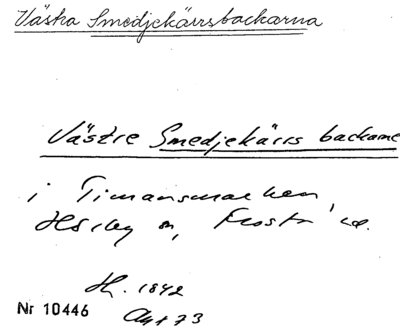 Västra Smedjekärrsbackarna
Västre Smedjekärrs backarne
i Timansmarken,
Hörby sn, Frosta hd.
H. 1842
Akt 73
Nr 10446